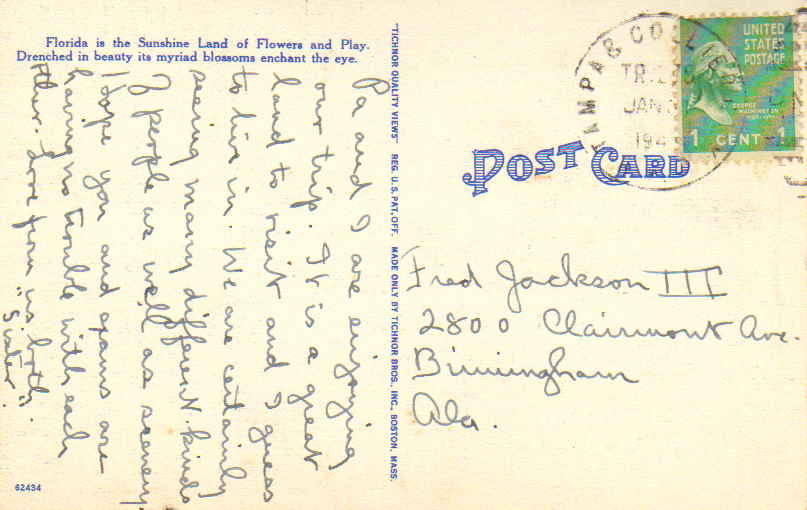 Florida is the Sunshine Land of Flowers and Play.
Drenched in beauty its myriad blossoms enchant the eye.
Pa and I are enjoying
our trip. It is a great
land to visit and I guess
to live in. We are certainly
seeing many different kinds
of people as well as scenery
I hope you and are
having no trouble with each
other. Love from us both.
"Sister".
62434
"TICHNOR QUALITY VIEWS" REG. U. S. PAT. OFF. MADE ONLY BY TICHNOR BROS., INC., BOSTON, MASS.
POST CARD
TAMPA &
TR.
JAN
194
UNITED
STATES
POSTAGE
GEORGE
WASHINGTON
1 CENT 1
Fred Jackson III
2800 Clairmont Ave.
Birmingham
Ala.